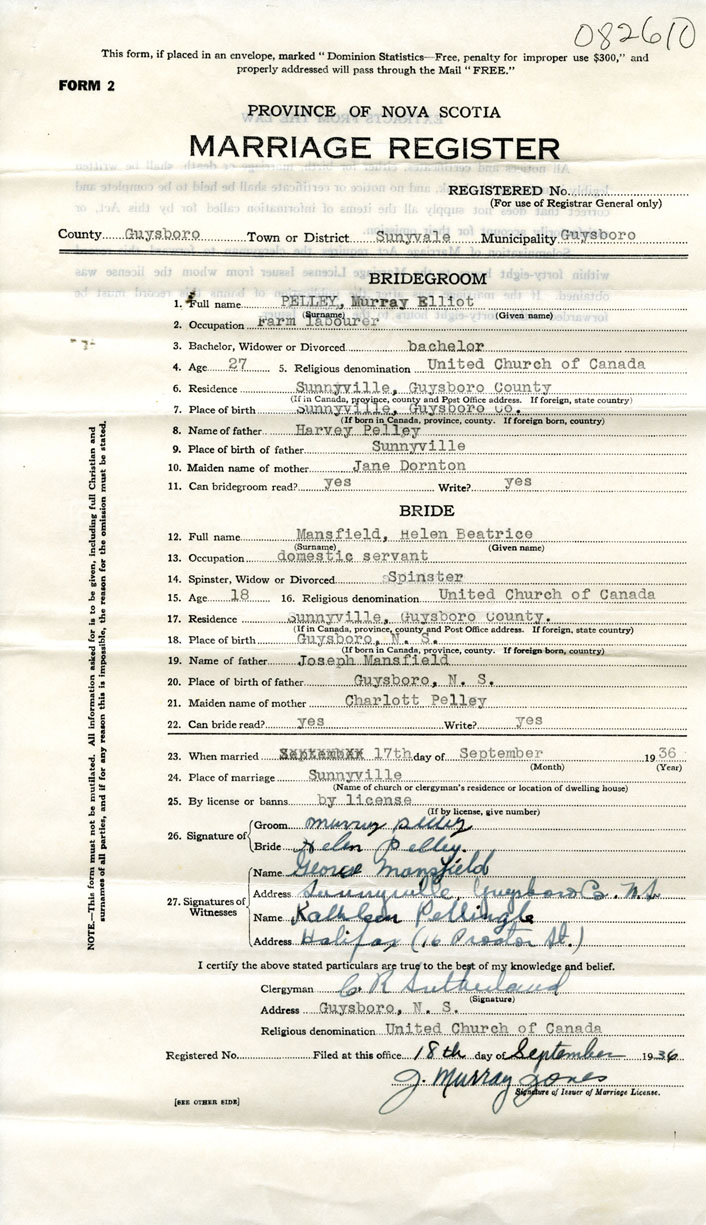 082610
This form, if placed in an envelope, marked "Dominion Statistics—Free, penalty for improper use $300," and
properly addressed will pass through the Mail "FREE."
FORM 2
PROVINCE OF NOVA SCOTIA
MARRIAGE REGISTER
REGISTERED No.
(For use of Registrar General only)
County Guysboro Town or District Sunyvale Municipality Guysboro
BRIDEGROOM
1. Full name PELLEY, Murray Elliot
(Surname) (Given name)
2. Occupation Farm labourer
3. Bachelor, Widower or Divorced bachelor
4. Age 27 5. Religious denomination United Church of Canada
6. Residence Sunnyville, Guysboro County
(If in Canada, province, county and Post Office address. If foreign, state country)
7. Place of birth Sunnyville, Guysboro Co.
(If born in Canada, province, county. If foreign born, country)
8. Name of father Harvey Pelley
9. Place of birth of father Sunnyville
10. Maiden name of mother Jane Dornton
11. Can bridegroom read? yes Write? yes
BRIDE
12. Full name Mansfield, Helen Beatrice
(Surname) (Given name)
13. Occupation domestic servant
14. Spinster, Widow or Divorced Spinster
15. Age 18 16. Religious denomination United Church of Canada
17. Residence Sunnyville, Guysboro County.
(If in Canada, province, county and Post Office address. If foreign, state country)
18. Place of birth Guysboro, N. S.
(If born in Canada, province, county. If foreign born, country)
19. Name of father Joseph Mansfield
20. Place of birth of father Guysboro, N. S.
21. Maiden name of mother Charlott Pelley
22. Can bride read? yes Write? yes
23. When married 17th day of September 1936
(Month) (Year)
24. Place of marriage Sunnyville
(Name of church or clergyman's residence or location of dwelling house)
25. By license or banns by license
(If by license, give number)
26. Signature of
Groom Murray Pelley
Bride Helen Pelley.
27. Signatures of Witnesses
Name George Mansfield
Address Sunnyville, Guysboro Co. N.S.
Name Kathleen
Address Halifax (16 Proctor St.)
I certify the above stated particulars are true to the best of my knowledge and belief.
Clergyman C R Sutherland
(Signature)
Address Guysboro, N. S.
Religious denomination United Church of Canada
Registered No. Filed at this office 18th day of September 1936
J. Murray Jones
Signature of Issuer of Marriage License.
[SEE OTHER SIDE]
NOTE.—This form must not be mutilated. All information asked for is to be given, including full Christian and
surnames of all parties, and if for any reason this is impossible, the reason for the omission must be stated.